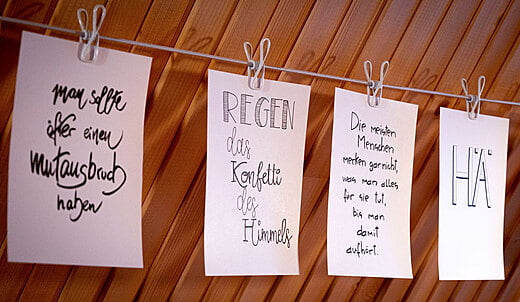 man sollte
öfter einen
Mutausbruch
haben
REGEN
das
Konfetti
des
Himmels
Die meisten
Menschen
merken gar nicht,
was man alles
für sie tut,
bis man
damit
aufhört.
HÄ